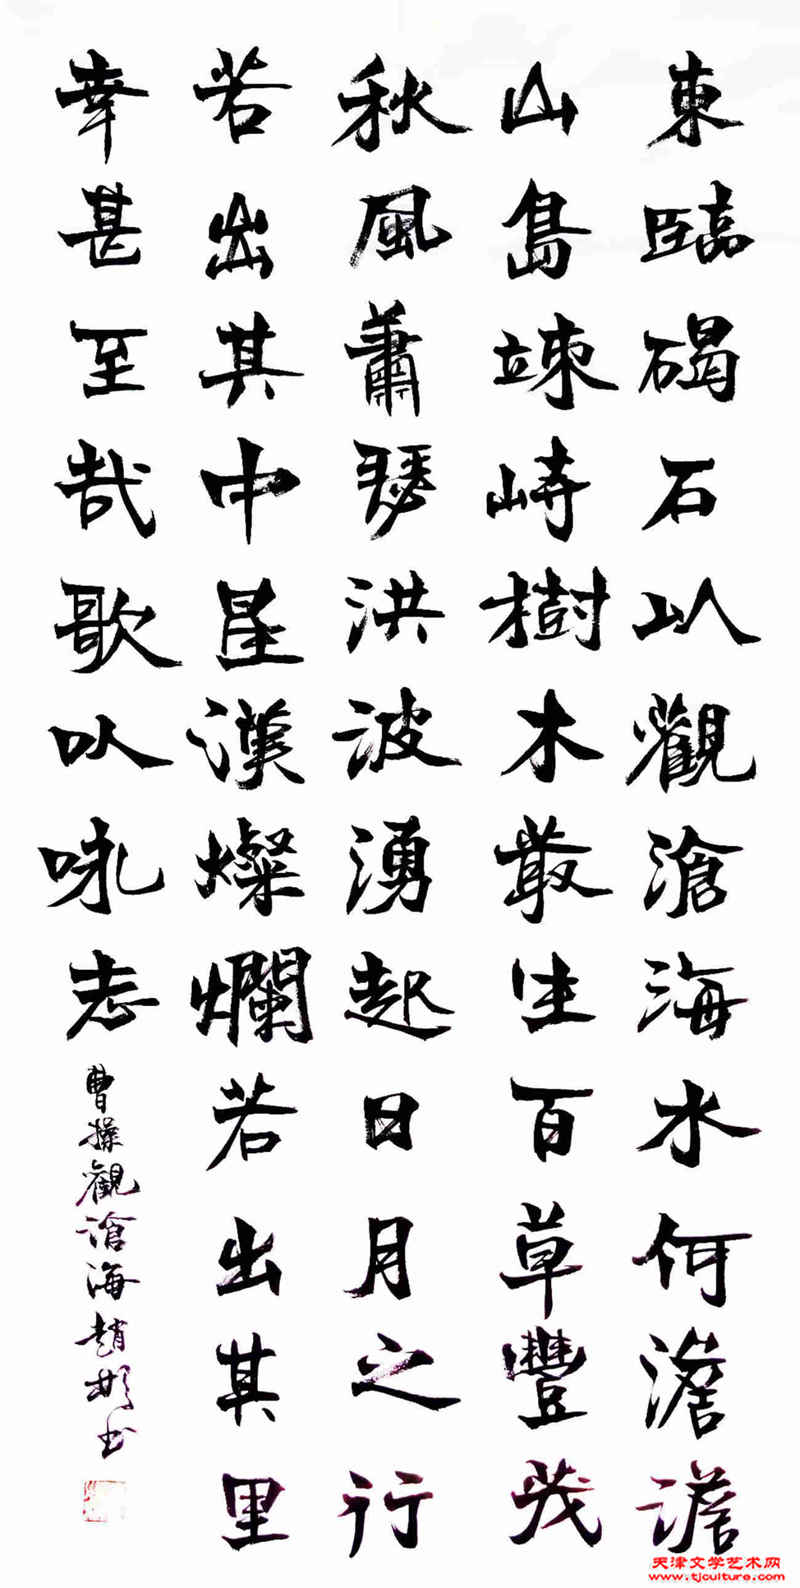 東臨碣石以觀滄海水何澹澹
山島竦峙樹木叢生百草豐茂
秋風蕭瑟洪波湧起日月之行
若出其中星漢燦爛若出其里
幸甚至哉歌以咏志
曹操觀滄海趙书
天津文学艺术网
www.tjculture.com